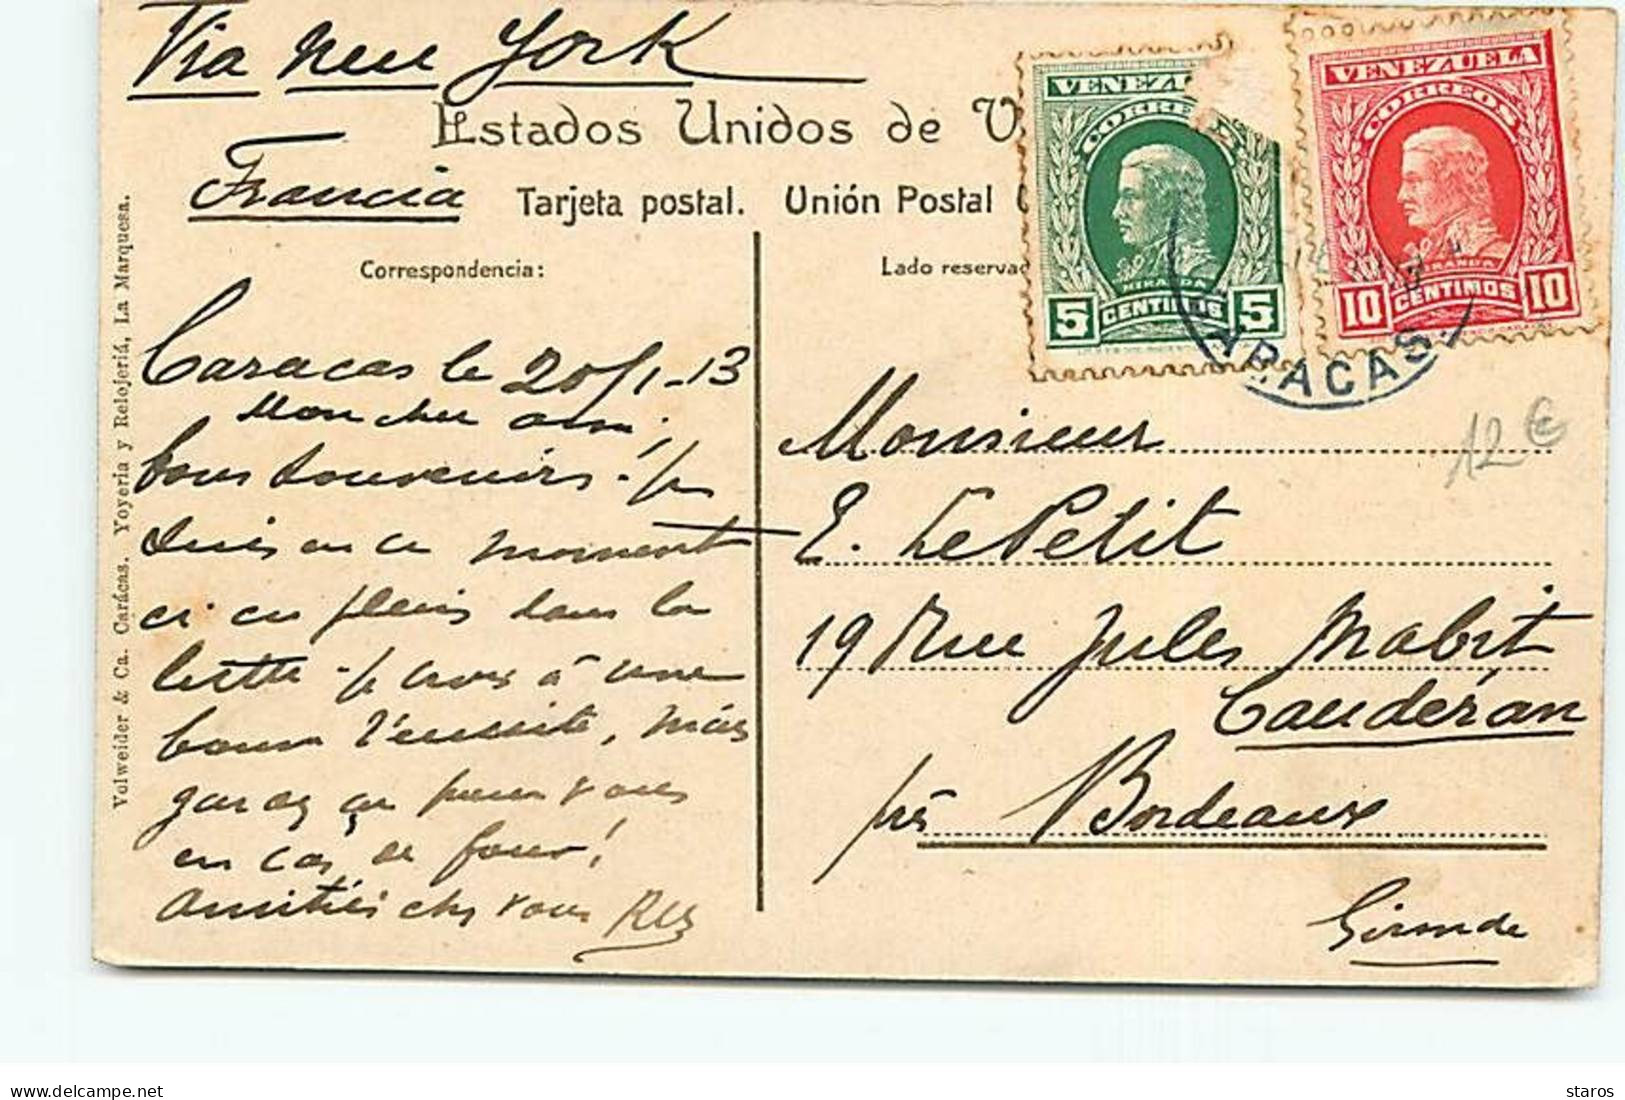 Via New York
Estados Unidos de V
Francia
Tarjeta postal. Unión Postal
Correspondencia:
Lado reservad
VENEZU
CORRE
MIRANDA
5 CENTIMOS 5
VENEZUELA
CORREOS
MIRANDA
10 CENTIMOS 10
CARACAS
12 €
Caracas le 20/1-13
Mon cher ami,
bons souvenirs. je
suis en ce moment
ci en plein dans la
lutte - je crois à une
bonne réussite, mais
en cas de four!
Amitiés chez vous
Monsieur
E. LePetit
19 Rue Jules Mabit
Caudéran
près Bordeaux
Gironde
Volweider & Ca. Carácas. Yoyeria y Relojeriá, La Marquesa.
delcampe.net
staros